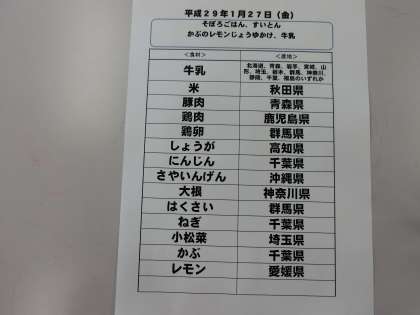 平成29年1月27日（金）
そぼろごはん、すいとん
かぶのレモンじょうゆかけ、牛乳
＜食材＞ ＜産地＞
牛乳 北海道、青森、岩手、宮城、山
形、埼玉、栃木、群馬、神奈川、
静岡、千葉、福島のいずれか
米 秋田県
豚肉 青森県
鶏肉 鹿児島県
鶏卵 群馬県
しょうが 高知県
にんじん 千葉県
さやいんげん 沖縄県
大根 神奈川県
はくさい 群馬県
ねぎ 千葉県
小松菜 埼玉県
かぶ 千葉県
レモン 愛媛県